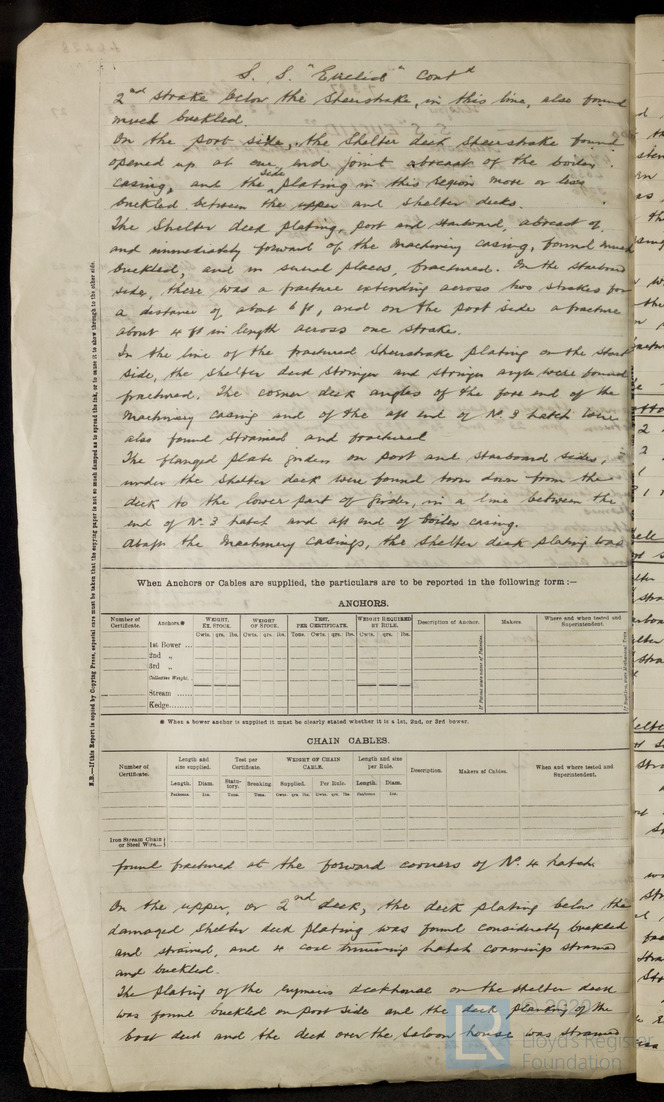 S. S. "Euclid" Contd
2nd strake below the Sheerstrake, in this line, also found
much buckled.
On the port side, the Shelter deck Sheerstrake found
opened up at one end joint abreast of the boiler
casing, and the side plating in this region more or less
buckled between the upper and shelter decks.
The Shelter deck plating, port and starboard, abreast of
and immediately forward of the Machinery casing, found much
buckled, and in several places, fractured. On the starboard
side, there was a fracture extending across two strakes for
a distance of about 6 ft, and on the port side a fracture
about 4 ft in length across one strake.
In the line of the fractured Sheerstrake plating on the Starb
side, the shelter deck Stringer and Stringer angle were found
fractured. The corner deck angles of the fore end of the
Machinery casing and of the aft end of No. 3 hatch were
also found strained and fractured
The flanged plate girders on port and starboard sides,
under the shelter deck were found torn down from the
deck to the lower part of girder, in a line between the
end of No. 3 hatch and aft end of boiler casing.
Abaft the Machinery Casings, the Shelter deck plating was
When Anchors or Cables are supplied, the particulars are to be reported in the following form :—
ANCHORS.
Number of Certificate. Anchors.* WEIGHT. EX. STOCK. WEIGHT OF STOCK. TEST. PER CERTIFICATE. WEIGHT REQUIRED BY RULE. Description of Anchor. Makers. Where and when tested and Superintendent.
Cwts. qrs. lbs. Cwts. qrs. lbs. Tons. Cwts. qrs. lbs. Cwts. qrs. lbs.
1st Bower ...
2nd „
3rd „
Collective Weight.
Stream
Kedge
* When a bower anchor is supplied it must be clearly stated whether it is a 1st, 2nd, or 3rd bower.
CHAIN CABLES.
Number of Certificate. Length and size supplied. Test per Certificate. WEIGHT OF CHAIN CABLE. Length and size per Rule. Description. Makers of Cables. When and where tested and Superintendent.
Length. Diam. Statutory. Breaking. Supplied. Per Rule. Length. Diam.
Fathoms. Ins. Tons. Tons. Cwts. qrs. lbs. Cwts. qrs. lbs. Fathoms. Ins.
Iron Stream Chain or Steel Wire...
found fractured at the forward corners of No. 4 hatch.
On the upper, or 2nd deck, the deck plating below the
damaged Shelter deck plating was found considerably buckled
and strained, and 4 coal trimming hatch coamings strained
and buckled.
The plating of the Engineers deckhouse on the shelter deck
was found buckled on port side and the deck planking of the
boat deck and the deck over the Saloon house was strained
N.B.—If this Report is copied by Copying Press, especial care must be taken that the copying paper is not so much damped as to spread the ink, or to cause it to show through to the other side.
LR
© 2020
Lloyd's Register
Foundation